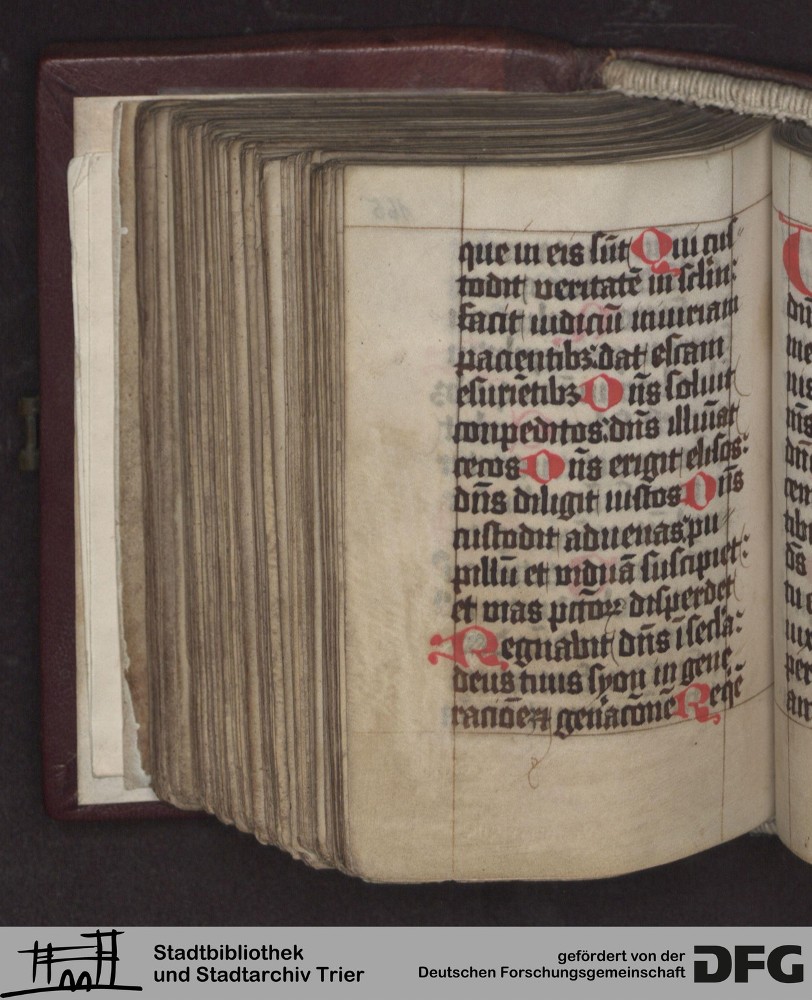 que in eis sūt Qui cus
todit veritatē in sclm:
facit iudiciū iniuriam
pacientibꝫ: dat escam
esuriētibꝫ Dn̄s soluit
conpeditos: dn̄s illuīat
cecos Dn̄s erigit elisos:
dn̄s diligit iustos Dn̄s
custodit aduenas: pu
pillū et viduā suscipiet:
et vias pctōꝝ disperdet
Regnabit dn̄s ī secla:
deus tuus syon in gene
racōeꝫ gen̄acōnē Reqē
Stadtbibliothek
und Stadtarchiv Trier
gefördert von der
Deutschen Forschungsgemeinschaft
DFG